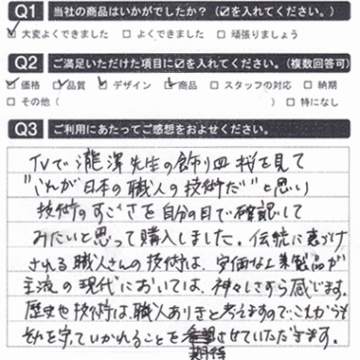 Q1 当社の商品はいかがでしたか？（☑を入れてください。）
☑大変よくできました □よくできました □頑張りましょう
Q2 ご満足いただけた項目に☑を入れてください。（複数回答可）
☑価格 ☑品質 ☑デザイン ☑商品 □スタッフの対応 □納期
□その他（ ） □特になし
Q3 ご利用にあたってご感想をおよせください。
TVで瀧澤先生の飾り皿 桜を見て
"これが日本の職人の技術だ"と思い
技術のすごさを自分の目で確認して
みたいと思って購入しました。伝統に裏づけ
される職人さんの技術は、安価な工業製品が
主流の現代においては、神々しすら感じます。
歴史や技術は、職人ありきと考えますのでこれからも
それを守っていかれることを期待させていただきます。